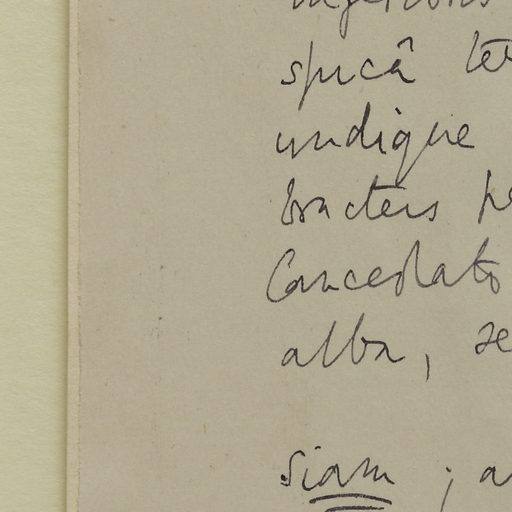 spicâ
undique
bracteis
lanceolato
alba,
Siam ;